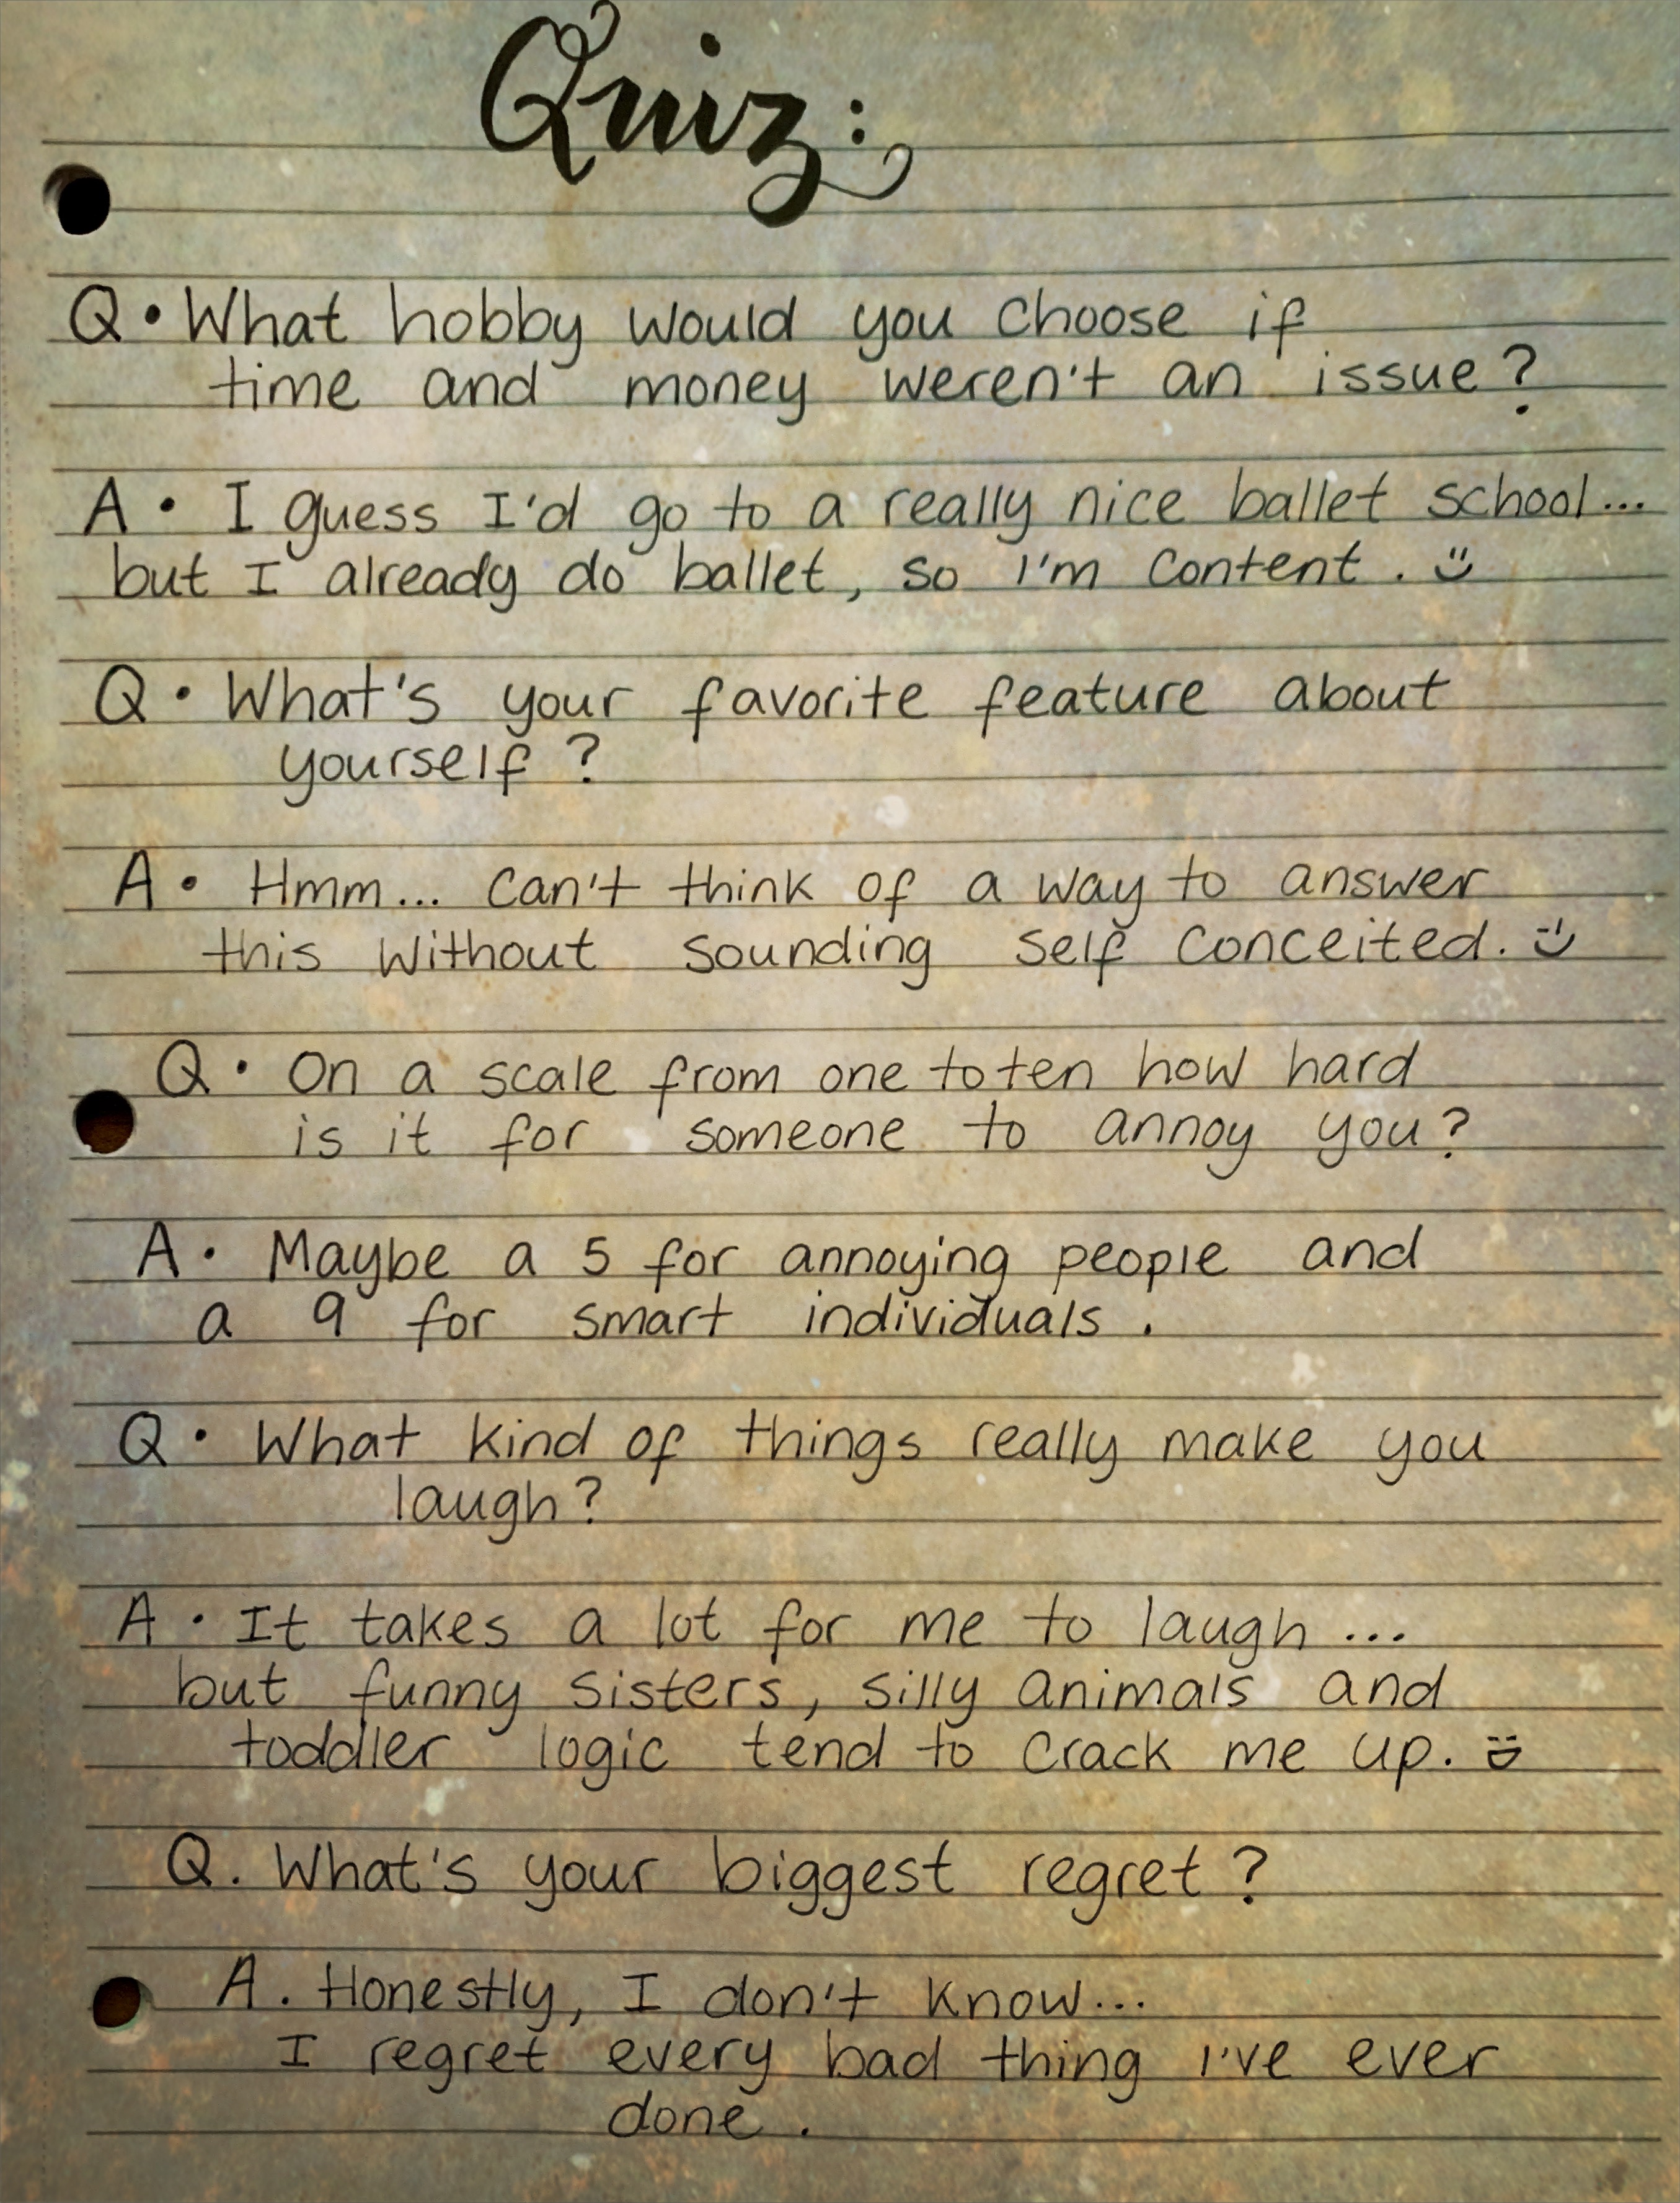 Quiz:
Q • What hobby would you choose if
time and money weren't an issue?
A • I guess I'd go to a really nice ballet school...
but I already do ballet, so I'm content. :)
Q • What's your favorite feature about
yourself?
A • Hmm... can't think of a way to answer
this without sounding self conceited. :)
Q • On a scale from one to ten how hard
is it for someone to annoy you?
A • Maybe a 5 for annoying people and
a 9 for smart individuals.
Q • What kind of things really make you
laugh?
A • It takes a lot for me to laugh ...
but funny sisters, silly animals and
toddler logic tend to crack me up. :D
Q. What's your biggest regret?
A. Honestly, I don't know...
I regret every bad thing I've ever
done.